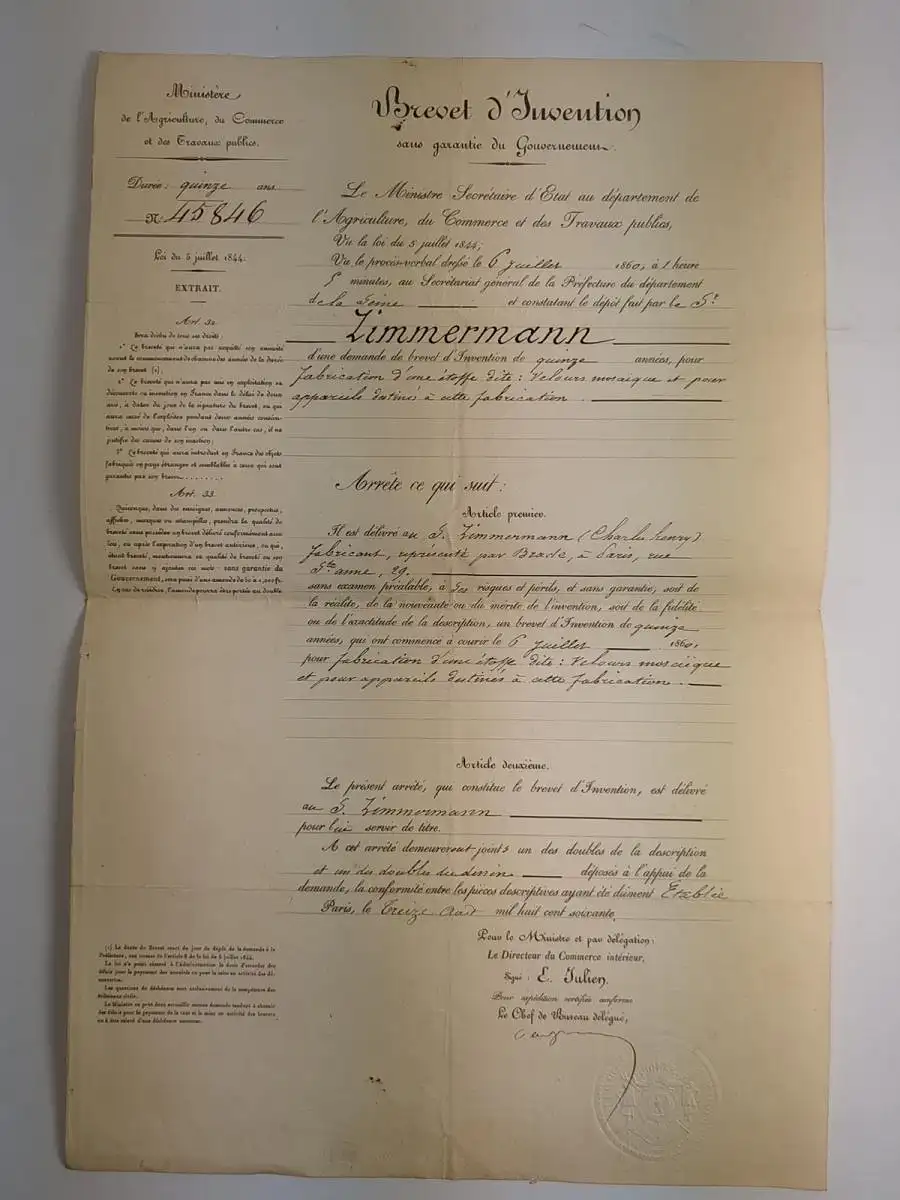 Ministère
de l'Agriculture, du Commerce
et des Travaux publics.
Durée : quinze ans
N° 45846
Loi du 5 juillet 1844.
EXTRAIT.
Art. 32.
Sera déchu de tous ses droits :
1° Le breveté qui n'aura pas acquitté son annuité
avant le commencement de chacune des années de la durée
de son brevet (1);
2° Le breveté qui n'aura pas mis en exploitation sa
découverte ou invention en France dans le délai de deux
ans, à dater du jour de la signature du brevet, ou qui
aura cessé de l'exploiter pendant deux années consécu-
tives, à moins que, dans l'un ou dans l'autre cas, il ne
justifie des causes de son inaction;
3° Le breveté qui aura introduit en France des objets
fabriqués en pays étranger et semblables à ceux qui sont
garantis par son brevet........
Art. 33.
Quiconque, dans des enseignes, annonces, prospectus,
affiches, marques ou estampilles, prendra la qualité de
breveté sans posséder un brevet délivré conformément aux
lois, ou après l'expiration d'un brevet antérieur, ou qui,
étant breveté, mentionnera sa qualité de breveté ou son
brevet sans y ajouter ces mots sans garantie du
Gouvernement, sera puni d'une amende de 50 à 1,000 fr.
En cas de récidive, l'amende pourra être portée au double.
(1) La durée du Brevet court du jour du dépôt de la demande à la
Préfecture, aux termes de l'article 8 de la loi du 5 juillet 1844.
La loi n'a point réservé à l'Administration le droit d'accorder des
délais pour le payement des annuités ou pour la mise en activité des dé-
couvertes.
Les questions de déchéance sont exclusivement de la compétence des
tribunaux civils.
Le Ministre ne peut donc accueillir aucune demande tendant à obtenir
des délais pour le payement de la taxe et la mise en activité des brevets
ou à être relevé d'une déchéance encourue.
Brevet d'Invention
sans garantie du Gouvernement.
Le Ministre Secrétaire d'Etat au département de
l'Agriculture, du Commerce et des Travaux publics,
Vu la loi du 5 juillet 1844;
Vu le procès-verbal dressé le 6 Juillet 1860, à 1 heure
5 minutes, au Secrétariat général de la Préfecture du département
de la Seine et constatant le dépôt fait par le Sr
Zimmermann
d'une demande de brevet d'Invention de quinze années, pour
fabrication d'une étoffe dite : Velours mosaïque et pour
appareils destinés à cette fabrication.
Arrête ce qui suit :
Article premier.
Il est délivré au S. Zimmermann (Charles henry)
fabricant, représenté par à Paris, rue
Ste anne, 29.
sans examen préalable, à ses risques et périls, et sans garantie, soit de
la réalité, de la nouveauté ou du mérite de l'invention, soit de la fidélité
ou de l'exactitude de la description, un brevet d'Invention de quinze
années, qui ont commencé à courir le 6 Juillet 1860,
pour fabrication d'une étoffe dite : Velours mosaïque
et pour appareils destinés à cette fabrication.
Article deuxième.
Le présent arrêté, qui constitue le brevet d'Invention, est délivré
au S. Zimmermann
pour lui servir de titre.
A cet arrêté demeureront joints un des doubles de la description
et un des doubles du dessin déposés à l'appui de la
demande, la conformité entre les pièces descriptives ayant été dûment Etablie
Paris, le Treize Août mil huit cent soixante.
Pour le Ministre et par délégation :
Le Directeur du Commerce intérieur,
Signé : E. Julien.
Pour expédition certifiée conforme
Le Chef de Bureau délégué,